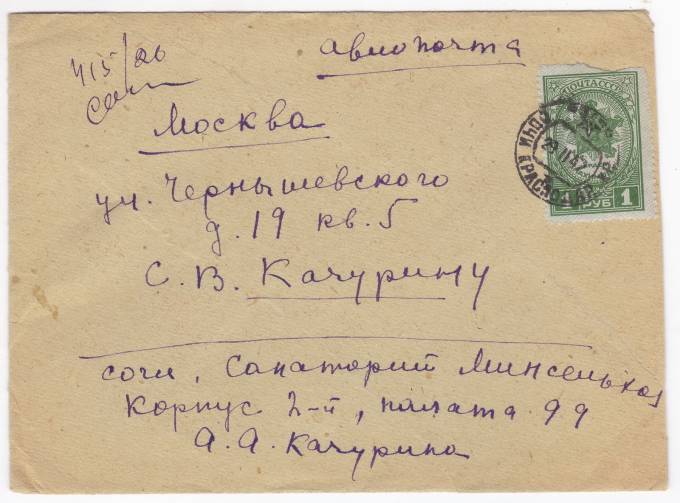 415/26
Сочи
авиопочта
Москва
ул. Чернышевского
д. 19 кв. 5
С. В. Качурину
сочи, Санаторий Минсельхоз
Корпус 2-й, палата 99
А. А. Качурина
ПОЧТА СССР
1 РУБ 1
СОЧИ КРАСНОДАР. КР.